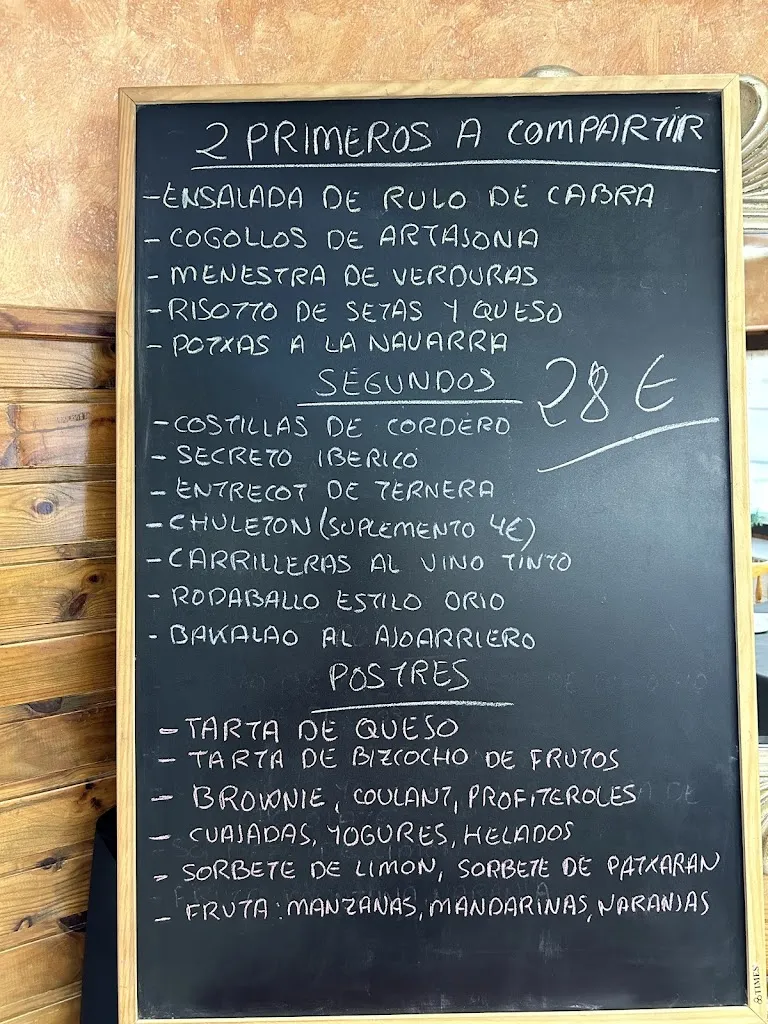 2 PRIMEROS A COMPARTIR
- ENSALADA DE RULO DE CABRA
- COGOLLOS DE ARTAJONA
- MENESTRA DE VERDURAS
- RISOTTO DE SETAS Y QUESO
- POTXAS A LA NAVARRA
SEGUNDOS
28 €
- COSTILLAS DE CORDERO
- SECRETO IBERICO
- ENTRECOT DE TERNERA
- CHULETON (SUPLEMENTO 4€)
- CARRILLERAS AL VINO TINTO
- RODABALLO ESTILO ORIO
- BAKALAO AL AJOARRIERO
POSTRES
- TARTA DE QUESO
- TARTA DE BIZCOCHO DE FRUTOS
- BROWNIE, COULANT, PROFITEROLES
- CUAJADAS, YOGURES, HELADOS
- SORBETE DE LIMON, SORBETE DE PATXARAN
- FRUTA: MANZANAS, MANDARINAS, NARANJAS
TIMES